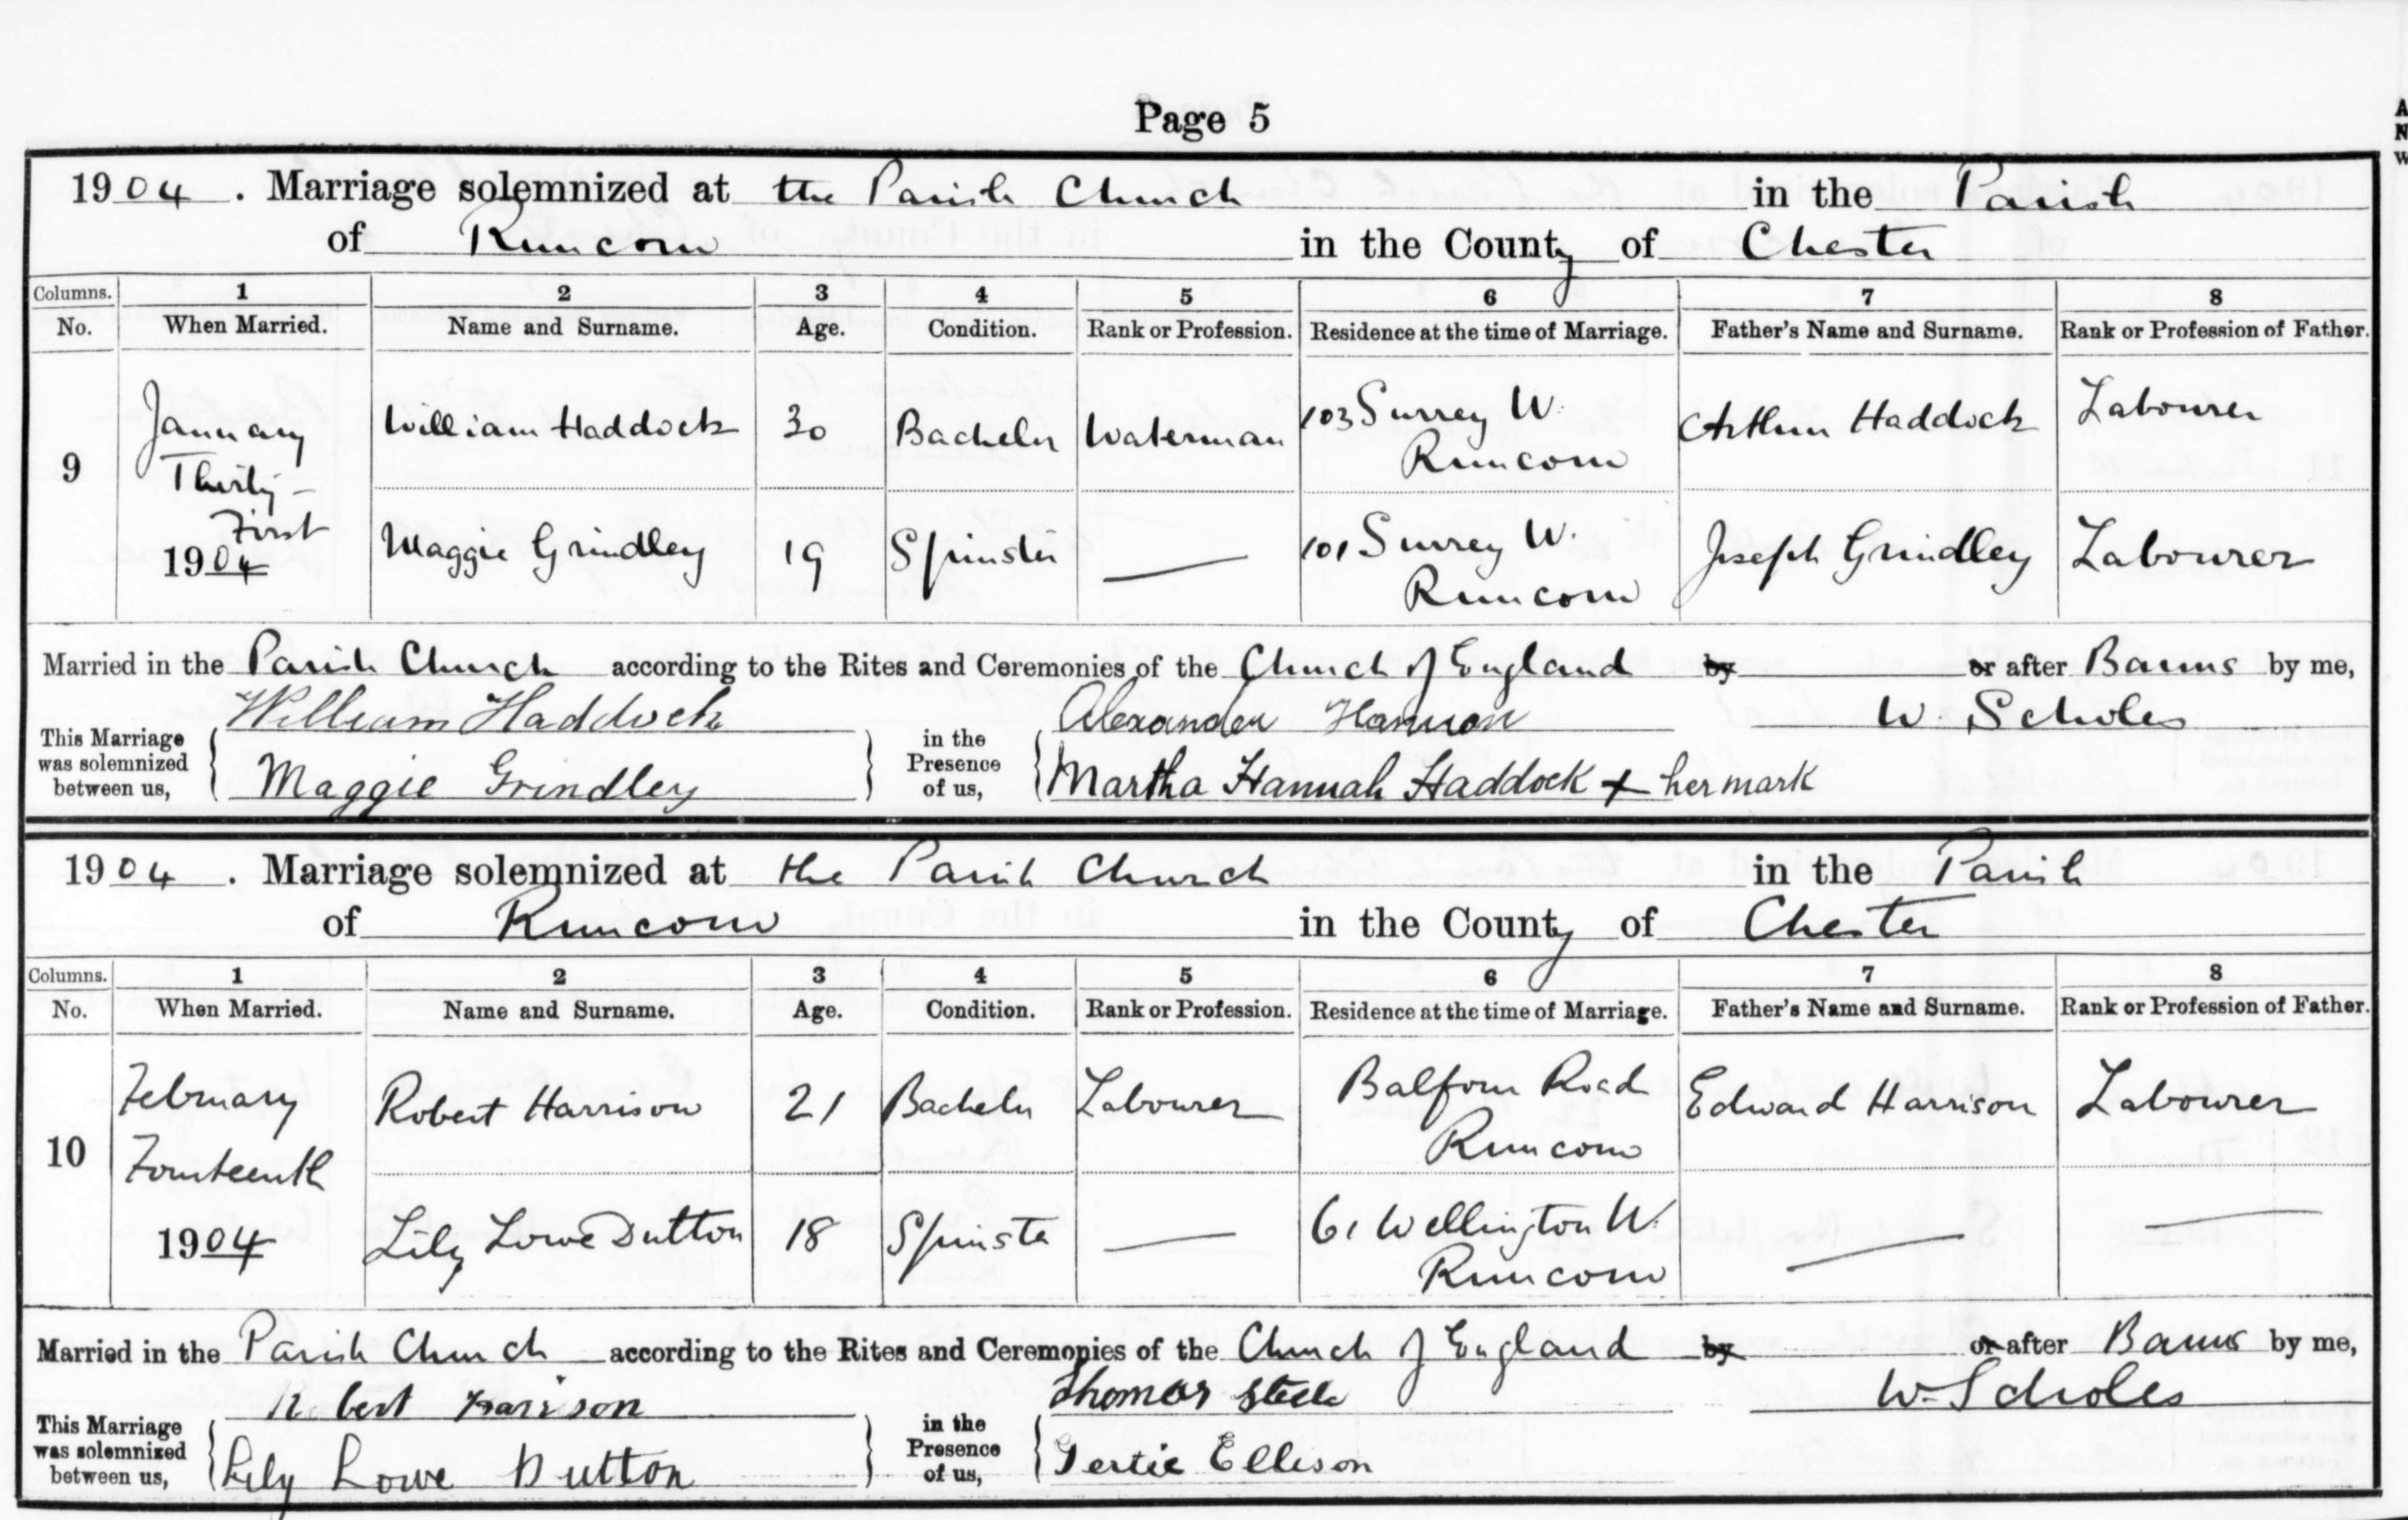 Page 5
1904. Marriage solemnized at the Parish Church in the Parish
of Runcorn in the County of Chester
Columns. 1 2 3 4 5 6 7 8
No. When Married. Name and Surname. Age. Condition. Rank or Profession. Residence at the time of Marriage. Father's Name and Surname. Rank or Profession of Father.
9 January Thirty-First 1904
William Haddock 30 Bachelor Waterman 103 Surrey W. Runcorn Arthur Haddock Labourer
Maggie Grindley 19 Spinster — 101 Surrey W. Runcorn Joseph Grindley Labourer
Married in the Parish Church according to the Rites and Ceremonies of the Church of England by or after Banns by me,
William Haddock Alexander Hannon W. Scholes
This Marriage was solemnized between us, in the Presence of us,
Maggie Grindley Martha Hannah Haddock x her mark
1904. Marriage solemnized at the Parish Church in the Parish
of Runcorn in the County of Chester
Columns. 1 2 3 4 5 6 7 8
No. When Married. Name and Surname. Age. Condition. Rank or Profession. Residence at the time of Marriage. Father's Name and Surname. Rank or Profession of Father.
10 February Fourteenth 1904
Robert Harrison 21 Bachelor Labourer Balfour Road Runcorn Edward Harrison Labourer
Lily Lowe Dutton 18 Spinster — 61 Wellington W. Runcorn — —
Married in the Parish Church according to the Rites and Ceremonies of the Church of England by or after Banns by me,
Robert Harrison Thomas Steele W. Scholes
This Marriage was solemnized between us, in the Presence of us,
Lily Lowe Dutton Gertie Ellison